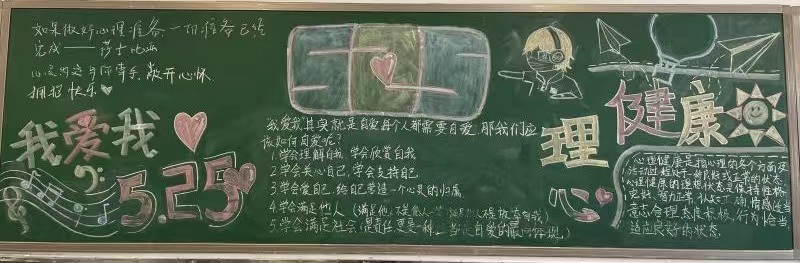 如果做好心理准备,一切准备已经
完成——莎士比亚
心灵的这与你牵手,敞开心怀,
拥抱快乐
我爱我
5.25
我爱我,其实就是自爱每个人都需要自爱,那我们应
该如何自爱呢?
1.学会理解自我,学会欣赏自我
2.学会关心自己,学会支持自己
3.学会爱自己,给自己营造一个心灵的归属
4.学会满足他人(满足他人不是放弃自我)
5.学会满足社会(是责任更是一种 自爱的最高体现)
心理健康
心理健康是指心理的各个方面及
活动过程处于一种良好或正常的状态。
心理健康的理想状态是保持性格
完好、智力正常、认知正确、情感适当、
意志合理、态度积极、行为恰当、
适应良好的状态